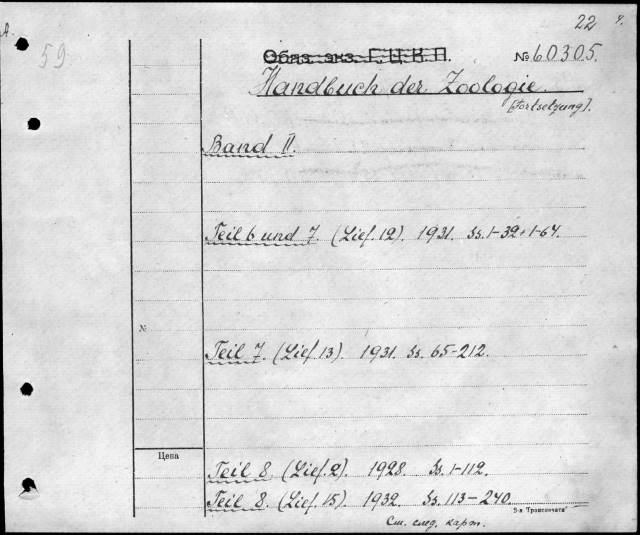 22
59
Обяз. экз. Г.Ц.К.П. № 60305.
Handbuch der Zoologie.
[Fortsetzung].
Band II.
Teil 6 und 7. (Lief. 12). 1931. Ss. 1-32 + 1-64.
№
Teil 7. (Lief. 13). 1931. Ss. 65-212.
Цена
Teil 8. (Lief. 2). 1928. Ss. 1-112.
Teil 8. (Lief. 15). 1932. Ss. 113-240.
5-я "Транспечати"
См. след. карт.